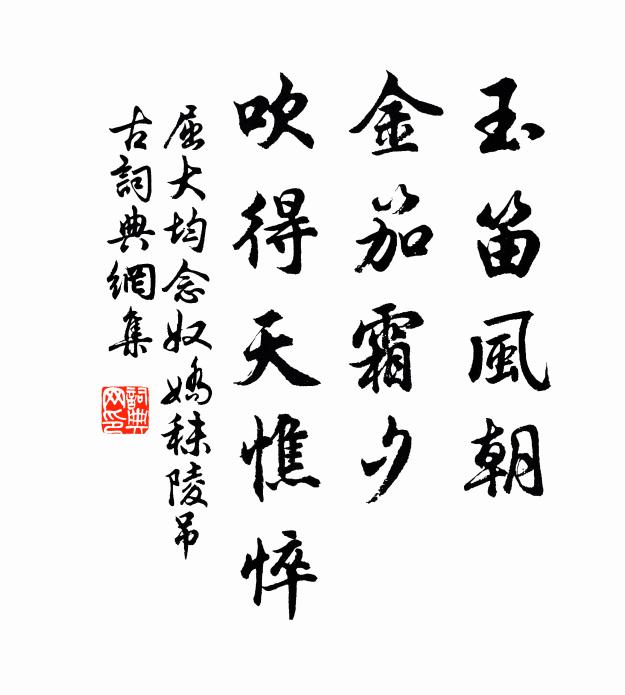 玉笛風朝
金笳霜夕
吹得天憔悴
屈大均念奴嬌秣陵吊
古詞典網集
詞典
网印